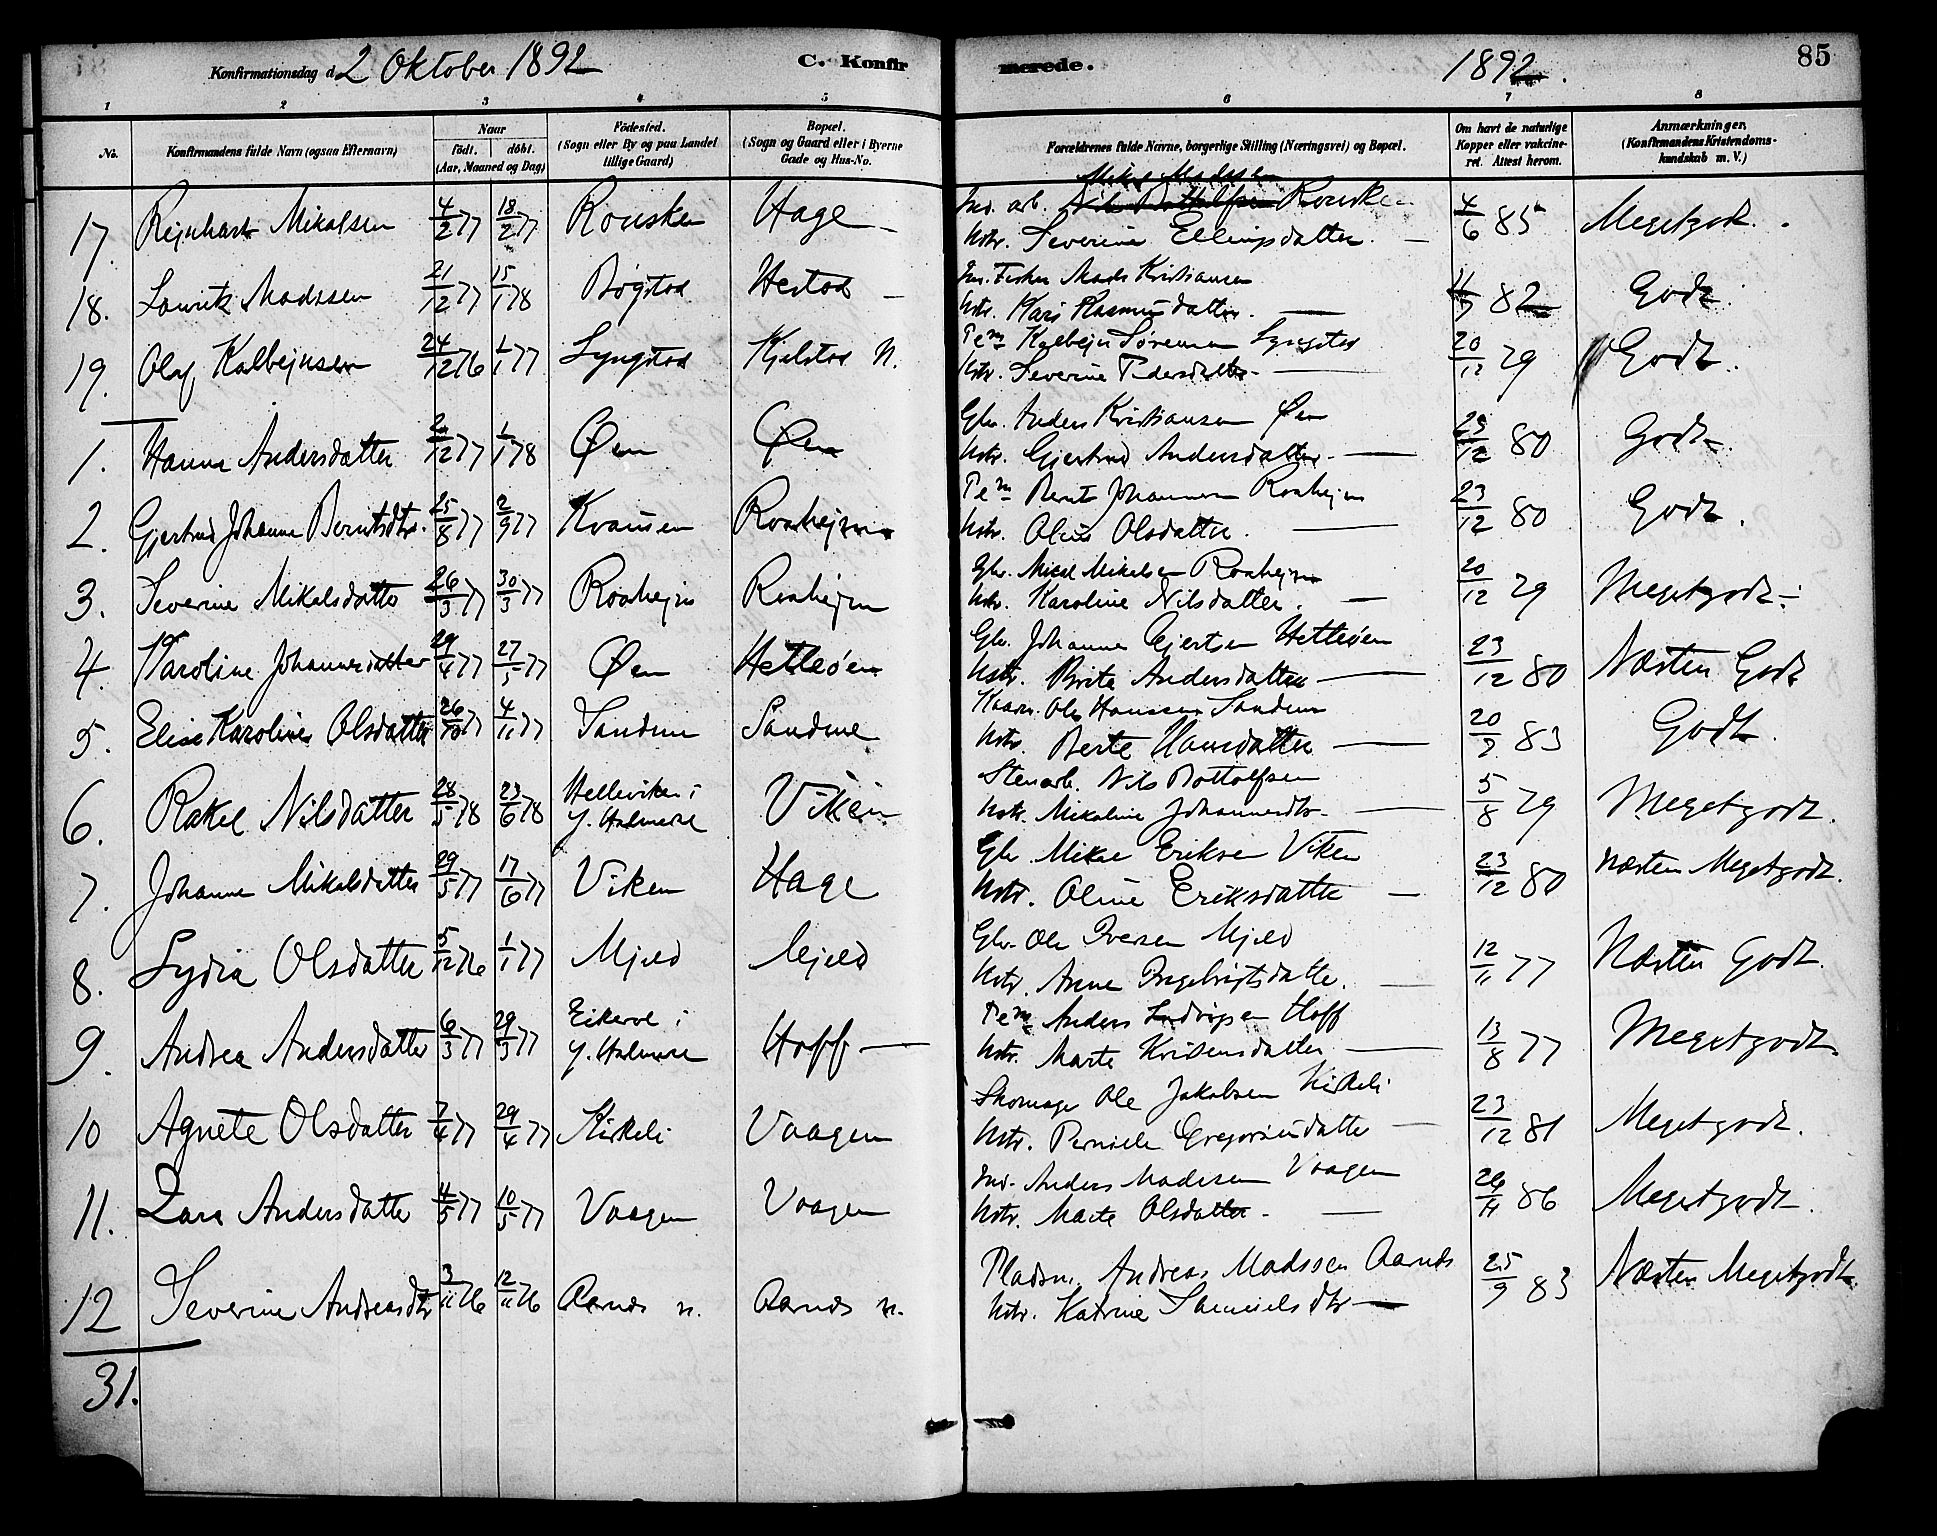 Konfirmationsdag d. 2 Oktober 1892
C. Konfirmerede.
1892.
85
1 2 3 4 5 6 7 8
No.
Konfirmandens fulde Navn (ogsaa Efternavn)
Naar
født. døbt.
(Aar, Maaned og Dag)
Fødested.
(Sogn eller By og paa Landet
tillige Gaard)
Bopæl.
(Sogn og Gaard eller i Byerne
Gade og Hus-No.
Forældrenes fulde Navne, borgerlige Stilling (Næringsvei) og Bopæl.
Om havt de naturlige
Kopper eller vakcine-
ret. Attest herom.
Anmærkninger.
(Konfirmandens Kristendoms-
kundskab m. V.)
17. Rejnhart Mikalsen 4/2 77 18/2 77 Rousken Hage Madssen Rousken
Severine Ellingsdatter. 4/6 85 Megetgodt.
18. Laurits Madssen 21/12 77 15/1 78 Bøgstad Hestad Mads Kristiansen
Kari Rasmusdatter. 82 Godt.
19. Olaf Kolbejnsen 24/12 76 1/1 77 Syngstad Kjelstad N. Kolbejn Sørensen Syngstad
Severine Pedersdatter. 20/12 79 Godt.
1. Hanna Andersdatter 12 77 1/1 78 Øen Øen Gbr. Anders Kristiansen Øen
Gjertrud Andersdatter. 23/12 80 Godt.
2. Gjertrud Johanne Berntsdtr. 25/8 77 2/9 77 Roahejm Bernt Johannesen Roahejm
Oline Olsdatter. 23/12 80 Godt.
3. Severine Mikalsdatter 26/3 77 30/3 77 Roahejm Roahejm Gbr. Mikal Mikalsen Roahejm
Karoline Nilsdatter. 20/12 79 Megetgodt.
4. Karoline Johannesdatter 29/4 77 27/5 77 Øen Hetleøen Gbr. Johannes Gjertsen Hetleøen
Brite Andersdatter 23/12 80 Næsten Godt
5. Elise Karoline Olsdatter 26/10 77 4/11 77 Sandene Sandene Ole Hanssen Sandene
Berte Hansdatter 20/7 83 Godt.
6. Rakel Nilsdatter 28/5 78 23/6 78 Helleviken i
Y. Holmedal Viken Stenarb. Nils Bottolfsen
Mikaline Johannesdtr. 5/8 79 Megetgodt.
7. Johanne Mikalsdatter 29/5 77 17/6 77 Viken Hage Gbr Mikal Eriksen Viken
Oline Eriksdatter 23/12 80 Næsten Megetgodt.
8. Lydia Olsdatter 5/12 76 1/1 77 Mjeld Mjeld Gbr. Ole Iversen Mjeld
Anne Ingebrigtsdatter. 12/11 77 Næsten Godt.
9. Andrea Andersdatter 6/3 77 29/3 77 i
Y. Holmedal Hoff Anders Ludvigsen Hoff
Marte Kristensdatter 13/8 77 Megetgodt.
10 Agnete Olsdatter 7/4 77 29/4 77 Kirkeli Vaagen Skomager Ole Jakobsen Kirkeli
Pernille Gregoriusdatter 23/12 81 Megetgodt.
11. Lara Andersdatter 4/5 77 10/5 77 Vaagen Vaagen Anders Madssen Vaagen
Marte Olsdatter. 26/11 86 Megetgodt.
12 Severine Andreasdtr 3/11 76 12/11 76 Aarnæs n. Aarnæs n. Pladsm. Andreas Madssen Aarnæs
Katrine Samuelsdtr 25/9 83 Næsten Megetgodt.
31.